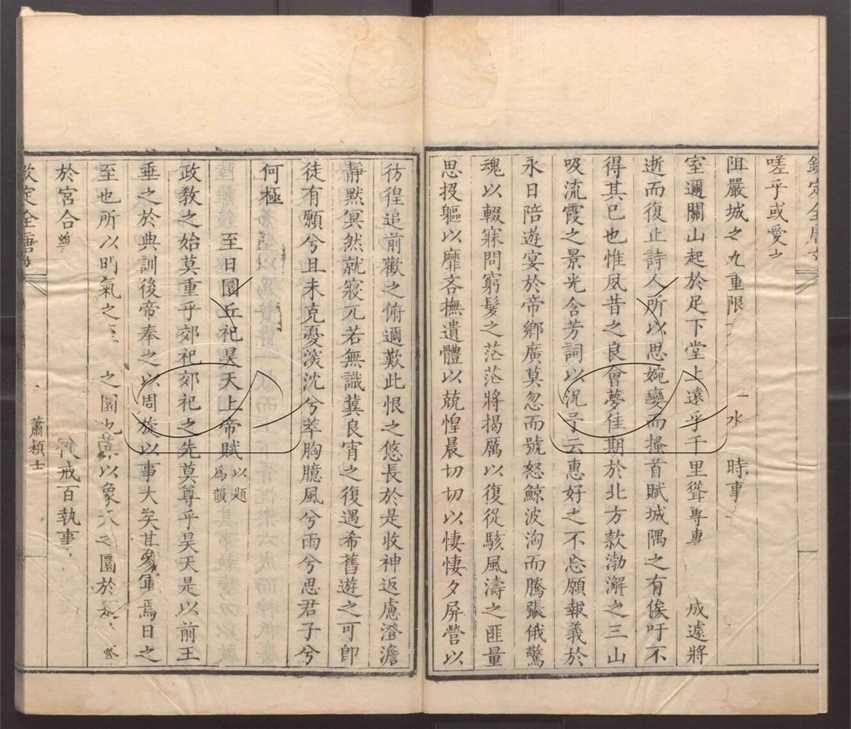 欽定全唐文
嗟乎或愛
阻嚴城之九重限一水時事
室邇關山起於足下堂上遠乎千里聳專專成遽將
逝而復止詩人所以思婉孌而搔首賦城隅之有俟吁不
得其已也惟夙昔之良會夢佳期於北方款渤澥之三山
吸流霞之景光含芳詞以況予云惠好之不忘願報義於
永日陪遊宴於帝鄉廣莫忽而號怒鯨波洶而騰張俄驚
魂以輟寐問窮髮之茫茫將揭厲以復從駭風濤之匪量
思投軀以靡吝撫遺體以兢惶晨切切以悽悽夕屏營以
彷徨追前歡之俯邇歎此恨之悠長於是收神返慮澄澹
靜默冥然就寢兀若無識冀良宵之復遇希舊遊之可即
徒有願兮且未克憂淡沈兮萃胸臆風兮雨兮思君子兮
何極
至日圜丘祀昊天上帝賦以題為韻
政教之始莫重乎郊祀郊祀之先莫尊乎昊天是以前王
垂之於典訓後帝奉之以周旋以事大矣其象筆焉日之
至也所以明氣之至之圜也以象天之圜於
於宮合戒百執事
欽定全唐文
蕭穎士